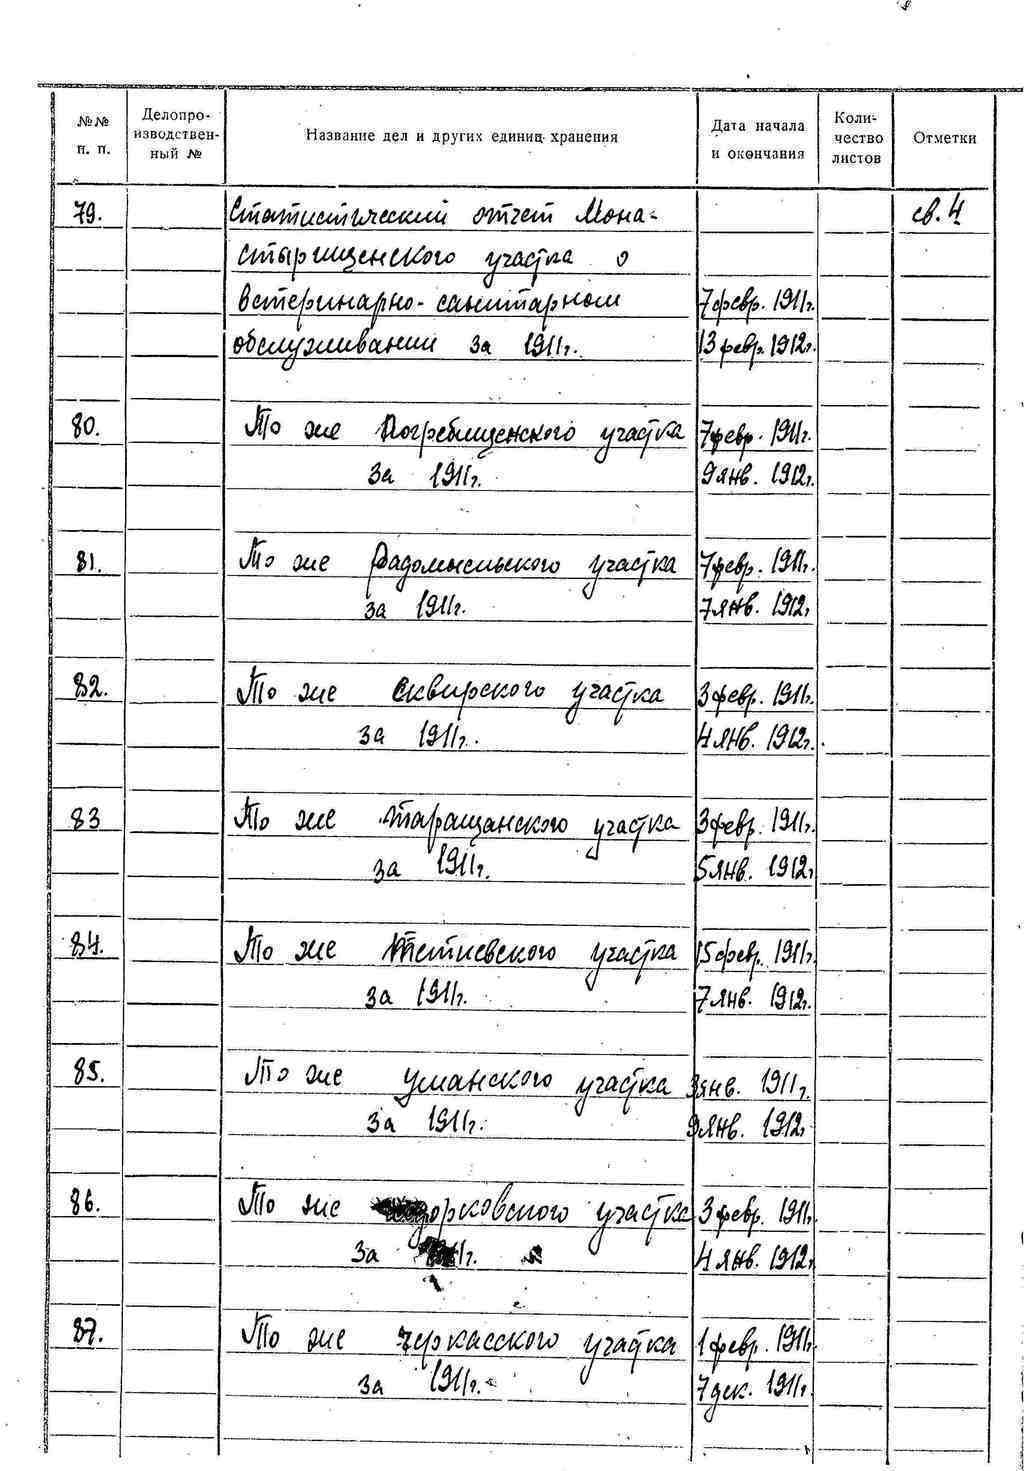 №№ п. п.
Делопро-
изводствен-
ный №
Название дел и других единиц хранения
Дата начала
и окончания
Коли-
чество
листов
Отметки
79. Статистический отчет Мона- св. 4
стырищенского участка о
ветеринарно-санитарном 7 февр. 1911г.
обслуживании за 1911г. 13 февр. 1912г.
80. То же Погребищенского участка 7 февр. 1911г.
за 1911г. 9 янв. 1912г.
81. То же Радомысльского участка 7 февр. 1911г.
за 1911г. 7 янв. 1912г.
82. То же Сквирского участка 3 февр. 1911г.
за 1911г. 4 янв. 1912г.
83 То же Таращанского участка 3 февр. 1911г.
за 1911г. 5 янв. 1912г.
84. То же Тетиевского участка 15 февр. 1911г.
за 1911г. 7 янв. 1912г.
85. То же Уманского участка 3 янв. 1911г.
за 1911г. 9 янв. 1912г.
86. То же участка 3 февр. 1911г.
за 4 янв. 1912г.
87. То же Черкасского участка 1 февр. 1911г.
за 1911г. 7 дек. 1911г.